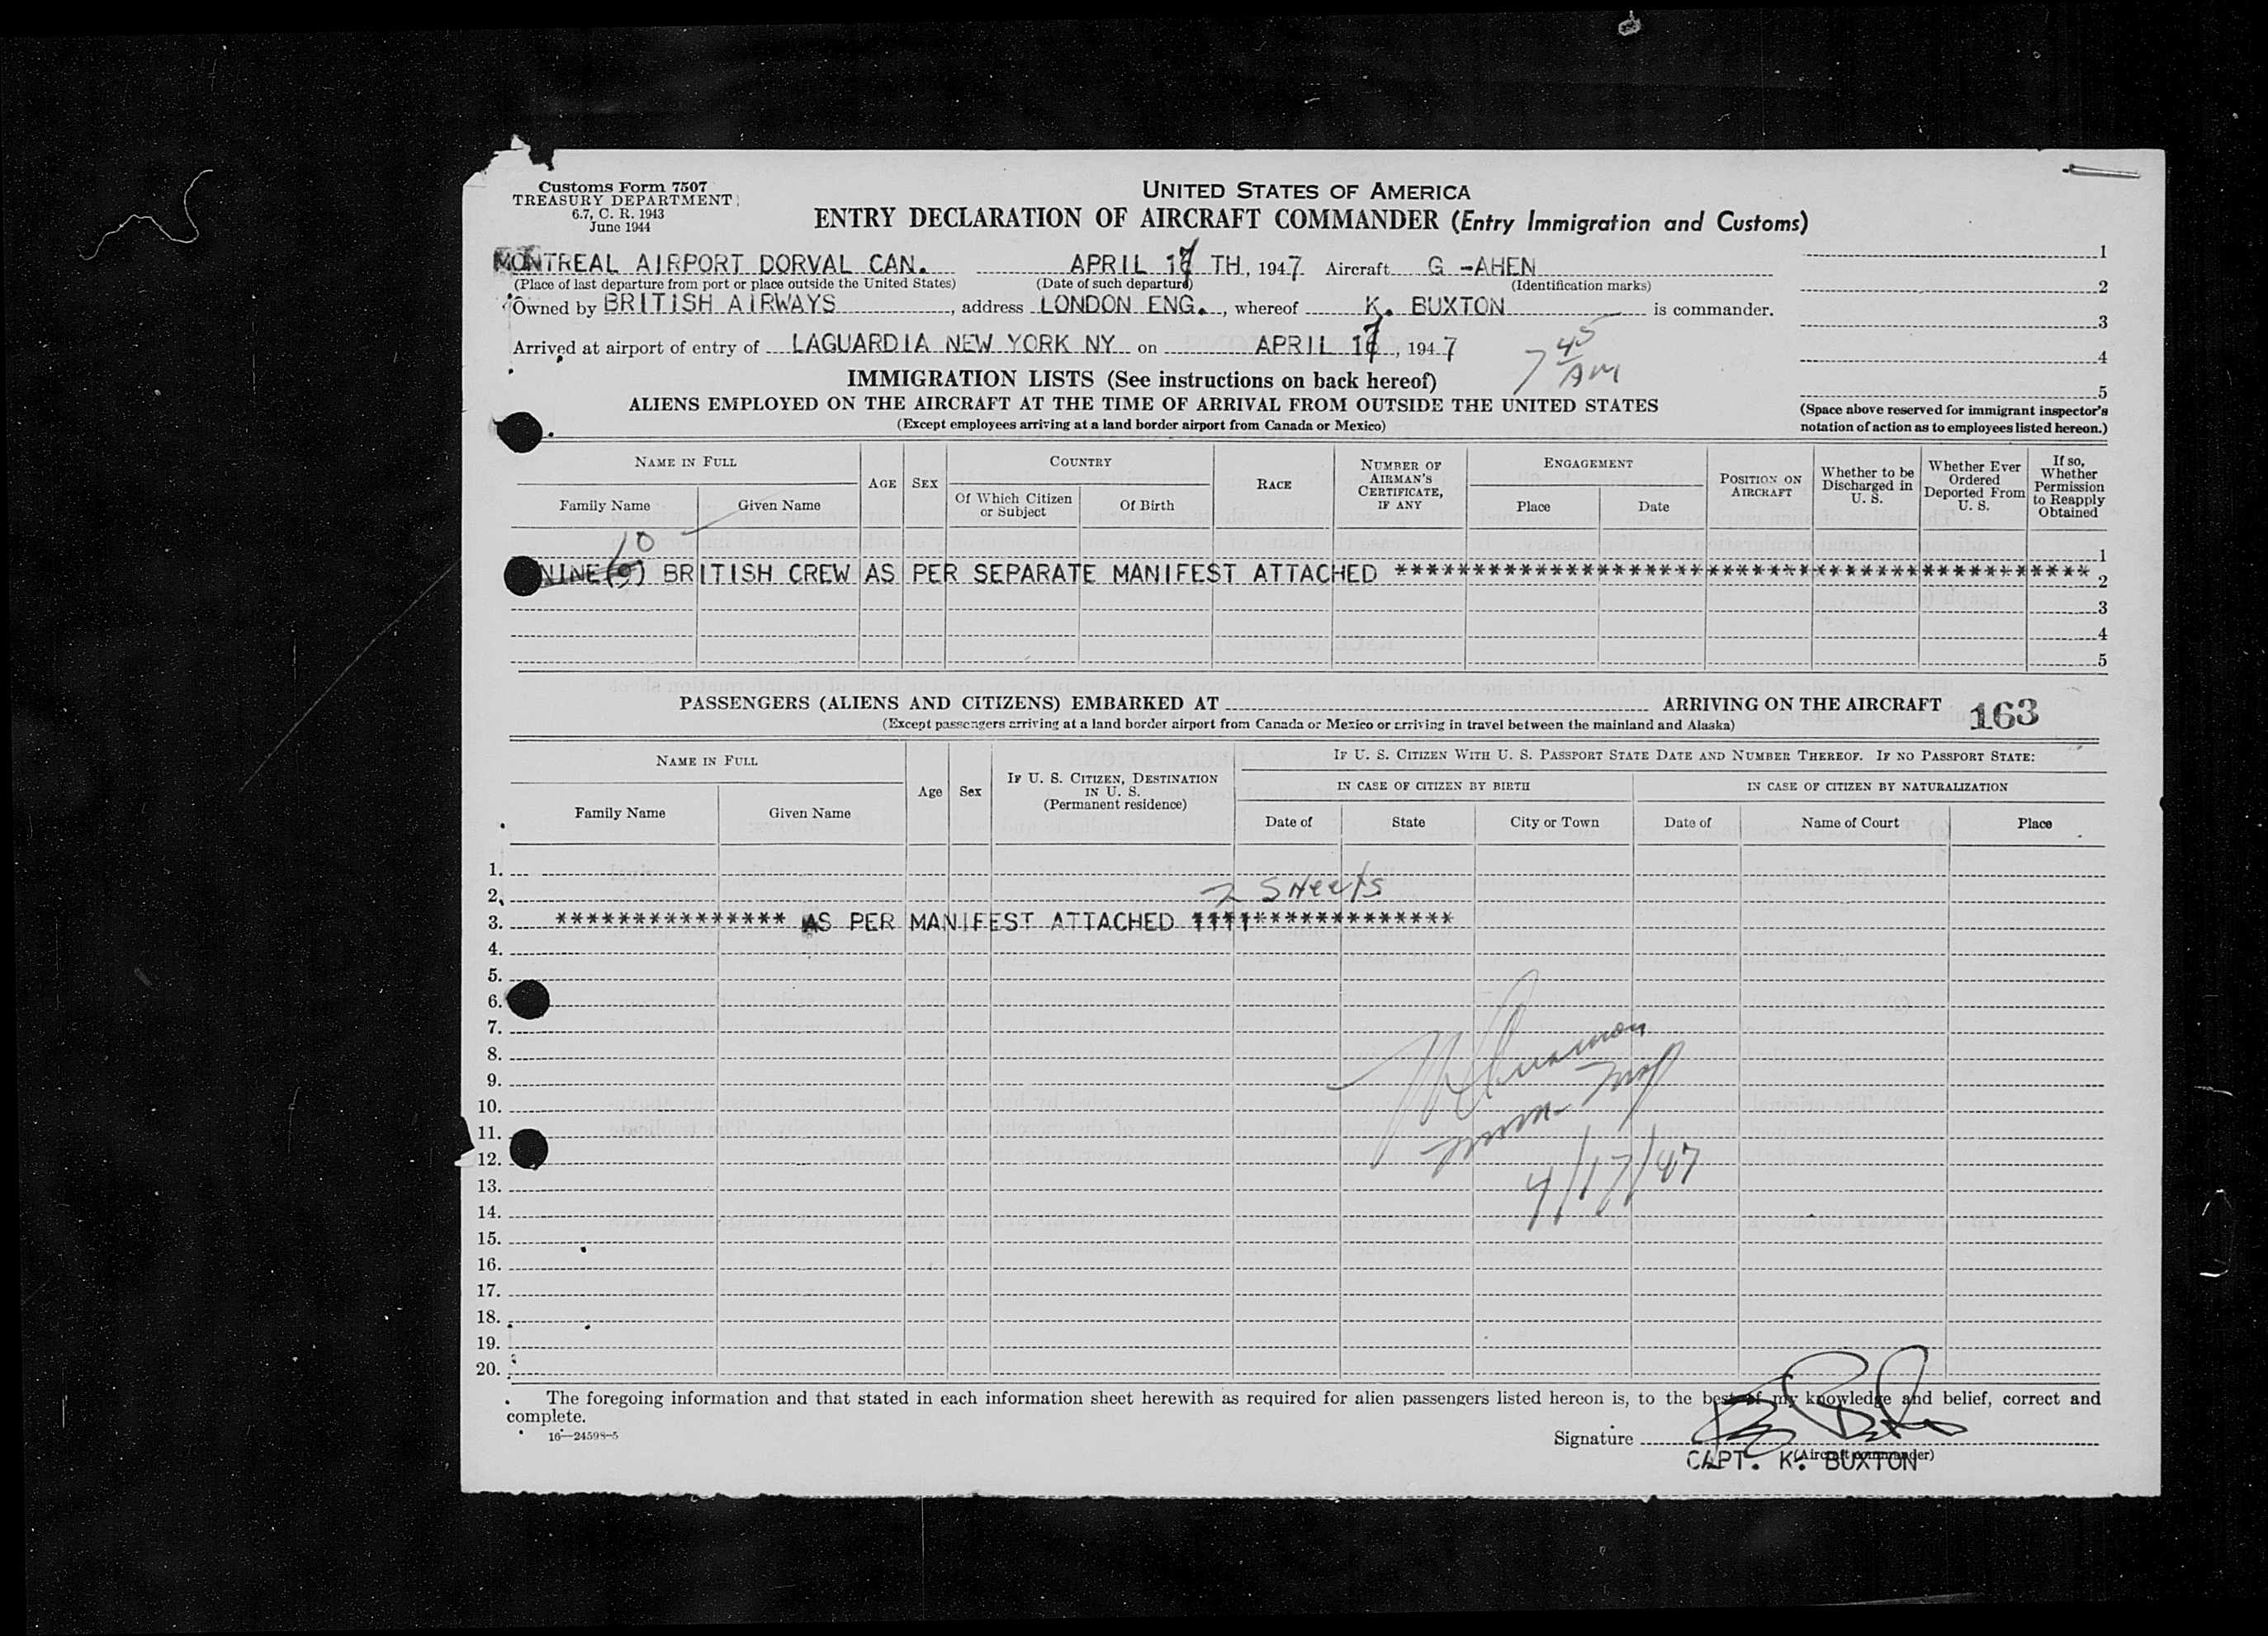 Customs Form 7507
TREASURY DEPARTMENT
6.7, C. R. 1943
June 1944
UNITED STATES OF AMERICA
ENTRY DECLARATION OF AIRCRAFT COMMANDER (Entry Immigration and Customs)
MONTREAL AIRPORT DORVAL CAN. APRIL 17 TH, 1947 Aircraft G -AHEN
(Place of last departure from port or place outside the United States) (Date of such departure) (Identification marks)
Owned by BRITISH AIRWAYS, address LONDON ENG., whereof K. BUXTON is commander.
Arrived at airport of entry of LAGUARDIA NEW YORK NY on APRIL 17, 1947
7 45 AM
1
2
3
4
5
(Space above reserved for immigrant inspector's
notation of action as to employees listed hereon.)
IMMIGRATION LISTS (See instructions on back hereof)
ALIENS EMPLOYED ON THE AIRCRAFT AT THE TIME OF ARRIVAL FROM OUTSIDE THE UNITED STATES
(Except employees arriving at a land border airport from Canada or Mexico)
NAME IN FULL
Family Name Given Name
AGE
SEX
COUNTRY
Of Which Citizen or Subject
Of Birth
RACE
NUMBER OF AIRMAN'S CERTIFICATE, IF ANY
ENGAGEMENT
Place Date
POSITION ON AIRCRAFT
Whether to be Discharged in U. S.
Whether Ever Ordered Deported From U. S.
If so, Whether Permission to Reapply Obtained
10
1
NINE(9) BRITISH CREW AS PER SEPARATE MANIFEST ATTACHED ********************************************* 2
3
4
5
PASSENGERS (ALIENS AND CITIZENS) EMBARKED AT ARRIVING ON THE AIRCRAFT 163
(Except passengers arriving at a land border airport from Canada or Mexico or arriving in travel between the mainland and Alaska)
NAME IN FULL
Family Name Given Name
Age
Sex
IF U. S. CITIZEN, DESTINATION IN U. S.
(Permanent residence)
IF U. S. CITIZEN WITH U. S. PASSPORT STATE DATE AND NUMBER THEREOF. IF NO PASSPORT STATE:
IN CASE OF CITIZEN BY BIRTH
IN CASE OF CITIZEN BY NATURALIZATION
Date of State City or Town Date of Name of Court Place
1.
2 Sheets
2.
3. *************** AS PER MANIFEST ATTACHED *****************
4.
5.
6.
7.
8.
9.
10.
11.
12.
4/17/47
13.
14.
15.
16.
17.
18.
19.
20.
The foregoing information and that stated in each information sheet herewith as required for alien passengers listed hereon is, to the best of my knowledge and belief, correct and
complete.
16—24598-5
Signature
(Aircraft commander)
CAPT. K. BUXTON